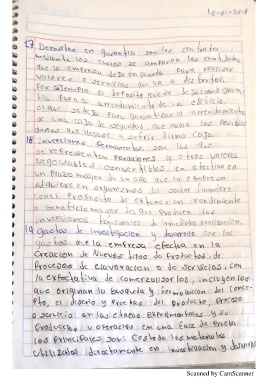 10-01-2018
17 Depositos en garantia son los contratos
mediante los cuales se amparan las cantidades
que la empresa deja en guarda para realizar
valores o servicios que va a disfrutar.
Por ejemplo el deposito que se deja como garan-
tia para el arrendamiento de un edificio
que se deja para garantizar el arrendamiento
de una caja de seguridad que cubre los posibles
daños que llegase a sufrir dicha caja.
18 inversiones permanentes son las que
se representan por acciones u otros valores
Negociables convertibles en efectivo en
un plazo mayor de un año que la empresa
adquiere en organismos del sector financiero
con el proposito de obtener un rendimiento
o beneficio mayor del que producen las
inversiones temporales o inmediata realización.
19 gastos de investigación y desarrollo son los
gastos que la empresa efectua en la
Creacion de Nuevos tipos de Productos, de
Procesos de elaboracion o de servicios, con
la expectativa de comercializarlos, incluyen los
que originan la busqueda y formulacion del conce-
pto, el diseño y pruebas del producto, proceso
o servicio en las etapas experimentales y su
produccion u operacion en una fase de prueba
los principales son: Costo de los materiales
utilizados directamente en investigacion y desarrollo
Scanned by CamScanner